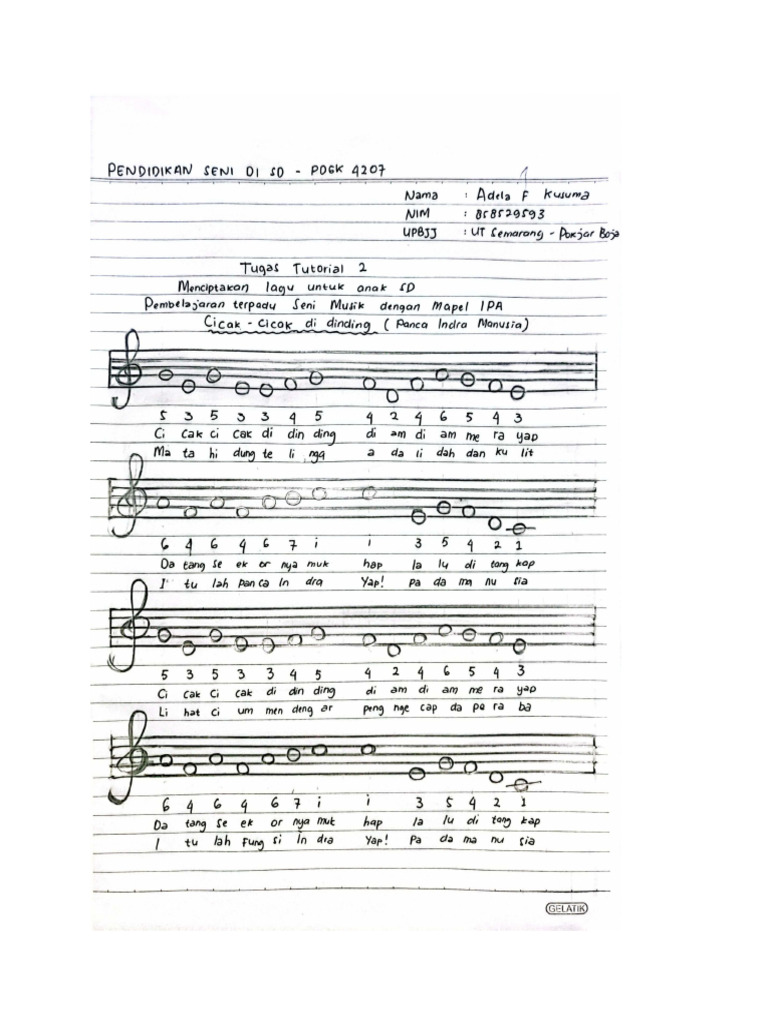 PENDIDIKAN SENI DI SD - PDGK 4207
Nama : Adela F Kusuma
NIM : 858529593
UPBJJ : UT Semarang - Pokjar Boja
Tugas Tutorial 2
Menciptakan lagu untuk anak SD
Pembelajaran terpadu Seni Musik dengan Mapel IPA
Cicak - Cicak di dinding ( Panca Indra Manusia)
5 3 5 3 3 4 5 4 2 4 6 5 4 3
Ci cak ci cak di din ding di am di am me ra yap
Ma ta hi dung te li nga a da li dah dan ku lit
6 4 6 4 6 7 i i 3 5 4 2 1
Da tang se ek or nya muk hap la lu di tang kap
I tu lah pan ca In dra Yap! pa da ma nu sia
5 3 5 3 3 4 5 4 2 4 6 5 4 3
Ci cak Ci cak di din ding di am di am me ra yap
Li hat ci um men deng ar peng nge cap da pe ra ba
6 4 6 4 6 7 i i 3 5 4 2 1
Da tang se ek or nya muk hap la lu di tang kap
I tu lah Fung si In dra Yap! Pa da ma nu sia
GELATIK